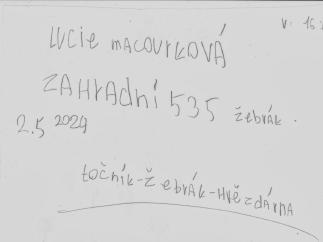 V. 15.
LUCie MACOURKOVÁ
ZAHrAdní 535 žebrák.
2.5 2024
točník-Žebrák-Hvězdárna